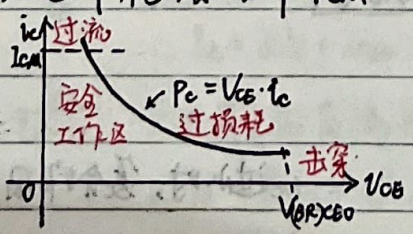 ic 过流
ICM
安全
工作区
Pc = VCE·ic
过损耗
击穿
0
V(BR)CEO
VCE